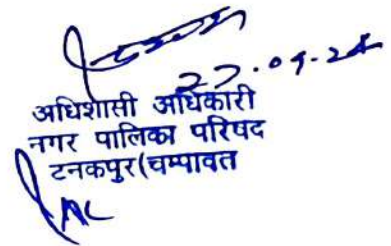 27.09.24
अधिशासी अधिकारी
नगर पालिका परिषद
टनकपुर(चम्पावत